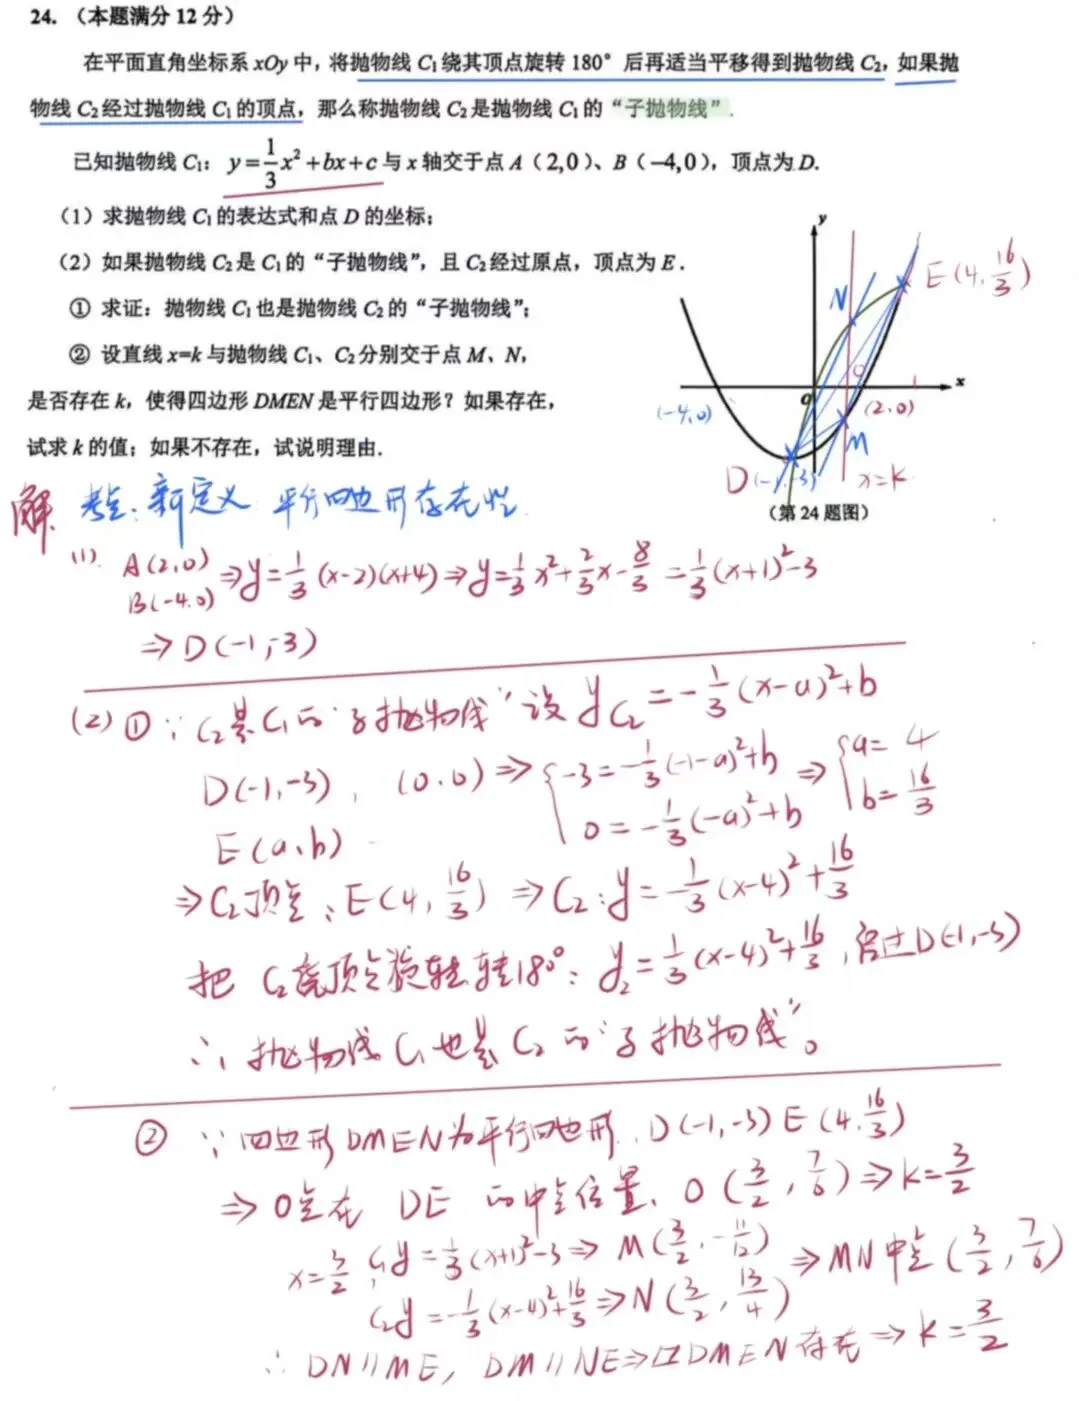 24. （本题满分 12 分）
在平面直角坐标系 xOy 中，将抛物线 C₁ 绕其顶点旋转 180° 后再适当平移得到抛物线 C₂，如果抛
物线 C₂ 经过抛物线 C₁ 的顶点，那么称抛物线 C₂ 是抛物线 C₁ 的“子抛物线”.
已知抛物线 C₁：y=1/3x²+bx+c 与 x 轴交于点 A（2,0）、B（−4,0），顶点为 D.
（1）求抛物线 C₁ 的表达式和点 D 的坐标；
（2）如果抛物线 C₂ 是 C₁ 的“子抛物线”，且 C₂ 经过原点，顶点为 E.
① 求证：抛物线 C₁ 也是抛物线 C₂ 的“子抛物线”；
② 设直线 x=k 与抛物线 C₁、C₂ 分别交于点 M、N，
是否存在 k，使得四边形 DMEN 是平行四边形？如果存在，
试求 k 的值；如果不存在，试说明理由.
y
E(4, 16/3)
N
O
x
O
(-4,0)
(2,0)
M
D(-1,-3)
x=k
（第 24 题图）
解 考点: 新定义 平行四边形存在性
(1). A(2,0)
B(-4,0)
⇒ y=1/3(x-2)(x+4) ⇒ y=1/3x²+2/3x-8/3 =1/3(x+1)²-3
⇒ D(-1,-3)
(2) ① ∵ C₂是C₁的“子抛物线” 设 y_C₂=-1/3(x-a)²+b
D(-1,-3), (0,0) ⇒ { -3=-1/3(-1-a)²+b
0=-1/3(-a)²+b
⇒ { a=4
b=16/3
E(a,b)
⇒ C₂顶点: E(4, 16/3) ⇒ C₂: y=-1/3(x-4)²+16/3
把 C₂绕顶点旋转转180°: y₂=1/3(x-4)²+16/3, 过D(-1,-3)
∴ 抛物线 C₁也是 C₂ 的“子抛物线”。
② ∵ 四边形DMEN为平行四边形. D(-1,-3) E(4, 16/3)
⇒ O点在 DE 的中点位置. O(3/2, 7/6) ⇒ k=3/2
x=3/2, C₁ y=1/3(x+1)²-3 ⇒ M(3/2, -11/12)
C₂ y=-1/3(x-4)²+16/3 ⇒ N(3/2, 13/4)
⇒ MN中点(3/2, 7/6)
∴ DN∥ME, DM∥NE ⇒ ▱DMEN存在 ⇒ k=3/2